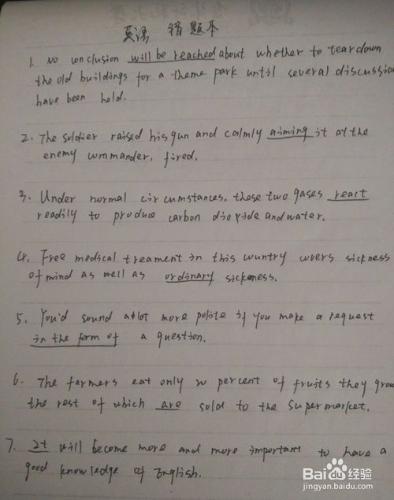 英语 错题本
1. No conclusion will be reached about whether to tear down
the old buildings for a theme park until several discussion
have been held.
2. The soldier raised his gun and calmly aiming it at the
enemy commander, fired.
3. Under normal circumstances, these two gases react
readily to produce carbon dioxide and water.
4. Free medical treament in this country covers sickness
of mind as well as ordinary sickness.
5. You'd sound a lot more polite if you make a request
in the form of a question.
6. The farmers eat only 20 percent of fruits they grow
the rest of which are sold to the supermarket.
7. It will become more and more important to have a
good knowledge of English.
Baidu经验
jingyan.baidu.com